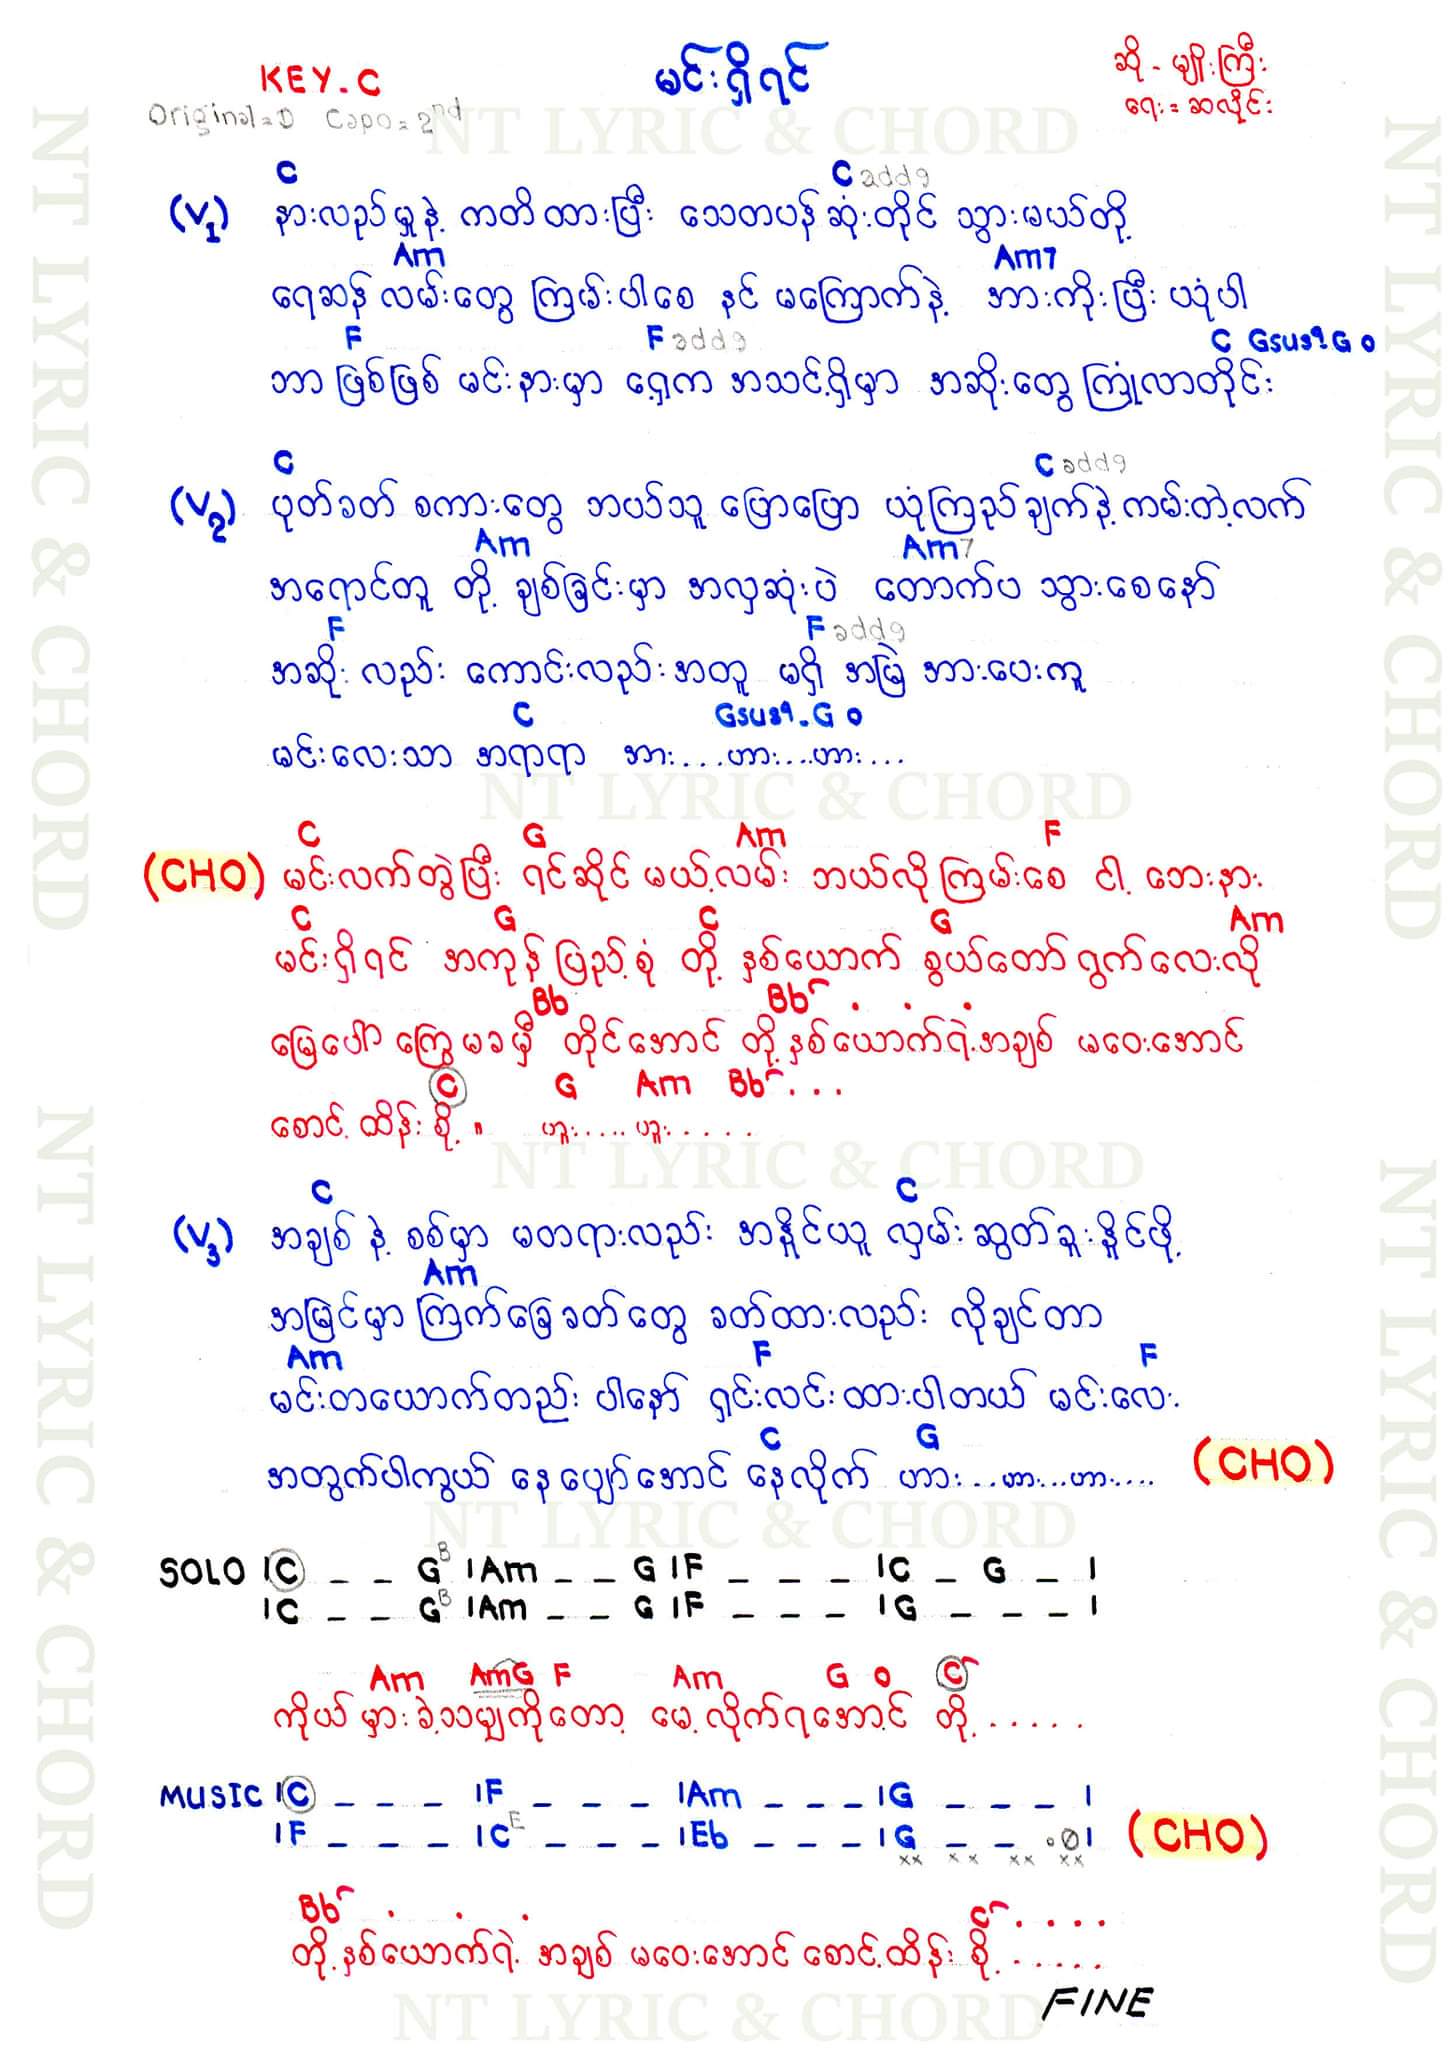 KEY.C မင်းရှိရင် ဆို - မျိုးကြီး
Original=D Capo=2nd ရေး = ဆလိုင်း
NT LYRIC & CHORD
C Cadd9
(V1) နားလည်မှုနဲ့ ကတိထားပြီး သေတပန်ဆုံးတိုင် သွားမယ်တို့
Am Am7
ရေဆန်လမ်းတွေ ကြမ်းပါစေ နင် မကြောက်နဲ့ အားကိုးပြီး ယုံပါ
F Fadd9 C Gsus4.G 0
ဘာဖြစ်ဖြစ် မင်းနားမှာ ရှေ့က အသင့်ရှိမှာ အဆိုးတွေ ကြုံလာတိုင်း
C Cadd9
(V2) ပုတ်ခတ် စကားတွေ ဘယ်သူ ပြောပြော ယုံကြည်ချက်နဲ့ ကမ်းတဲ့လက်
Am Am7
အရောင်တူ တို့ ချစ်ခြင်းမှာ အလှဆုံးပဲ တောက်ပ သွားစေနော်
F Fadd9
အဆိုး လည်း ကောင်းလည်းအတူ မရှိ အမြဲ အားပေးကူ
C Gsus4.G 0
မင်းလေးသာ အရာရာ အား...ဟား...ဟား...
NT LYRIC & CHORD
C G Am F
(CHO) မင်းလက်တွဲပြီး ရင်ဆိုင်မယ့်လမ်း ဘယ်လိုကြမ်းစေ ငါ့ ဘေးနား
C G C G Am
မင်းရှိရင် အကုန်ပြည့်စုံ တို့ နှစ်ယောက် စွယ်တော်ရွက်လေးလို
Bb Bb . . .
မြေပေါ်ကြွေမခမှီ တိုင်အောင် တို့နှစ်ယောက်ရဲ့အချစ် မဝေးအောင်
C G Am Bb ...
စောင့်ထိန်းစို့ " ဟူး.....ဟူး.....
NT LYRIC & CHORD
C C
(V3) အချစ် နဲ့ စစ်မှာ မတရားလည်း အနိုင်ယူ လှမ်းဆွတ်ခူးနိုင်ဖို့
Am
အမြင်မှာ ကြက်ခြေခတ်တွေ ခတ်ထားလည်း လိုချင်တာ
Am F F
မင်းတယောက်တည်း ပါနော် ရှင်းလင်းထားပါတယ် မင်းလေး
C G
အတွက်ပါကွယ် နေပျော်အောင် နေလိုက် ဟား...ဟား...ဟား.... (CHO)
NT LYRIC & CHORD
SOLO |C _ _ G B |Am _ _ G |F _ _ _ |C _ G _ |
|C _ _ G B |Am _ _ G |F _ _ _ |G _ _ _ |
Am AmG F Am G 0 C
ကိုယ်မှားခဲ့သမျှကိုတော့ မေ့လိုက်ရအောင် တို့.....
MUSIC |C _ _ _ |F _ _ _ |Am _ _ _ |G _ _ _ |
|F _ _ _ |C E _ _ _ |Eb _ _ _ |G _ _ .0| (CHO)
xx xx xx xx
Bb . . . C ....
တို့နှစ်ယောက်ရဲ့ အချစ် မဝေးအောင် စောင့်ထိန်း စို့......
FINE
NT LYRIC & CHORD
NT LYRIC & CHORD
NT LYRIC & CHORD
NT LYRIC & CHORD
NT LYRIC & CHORD